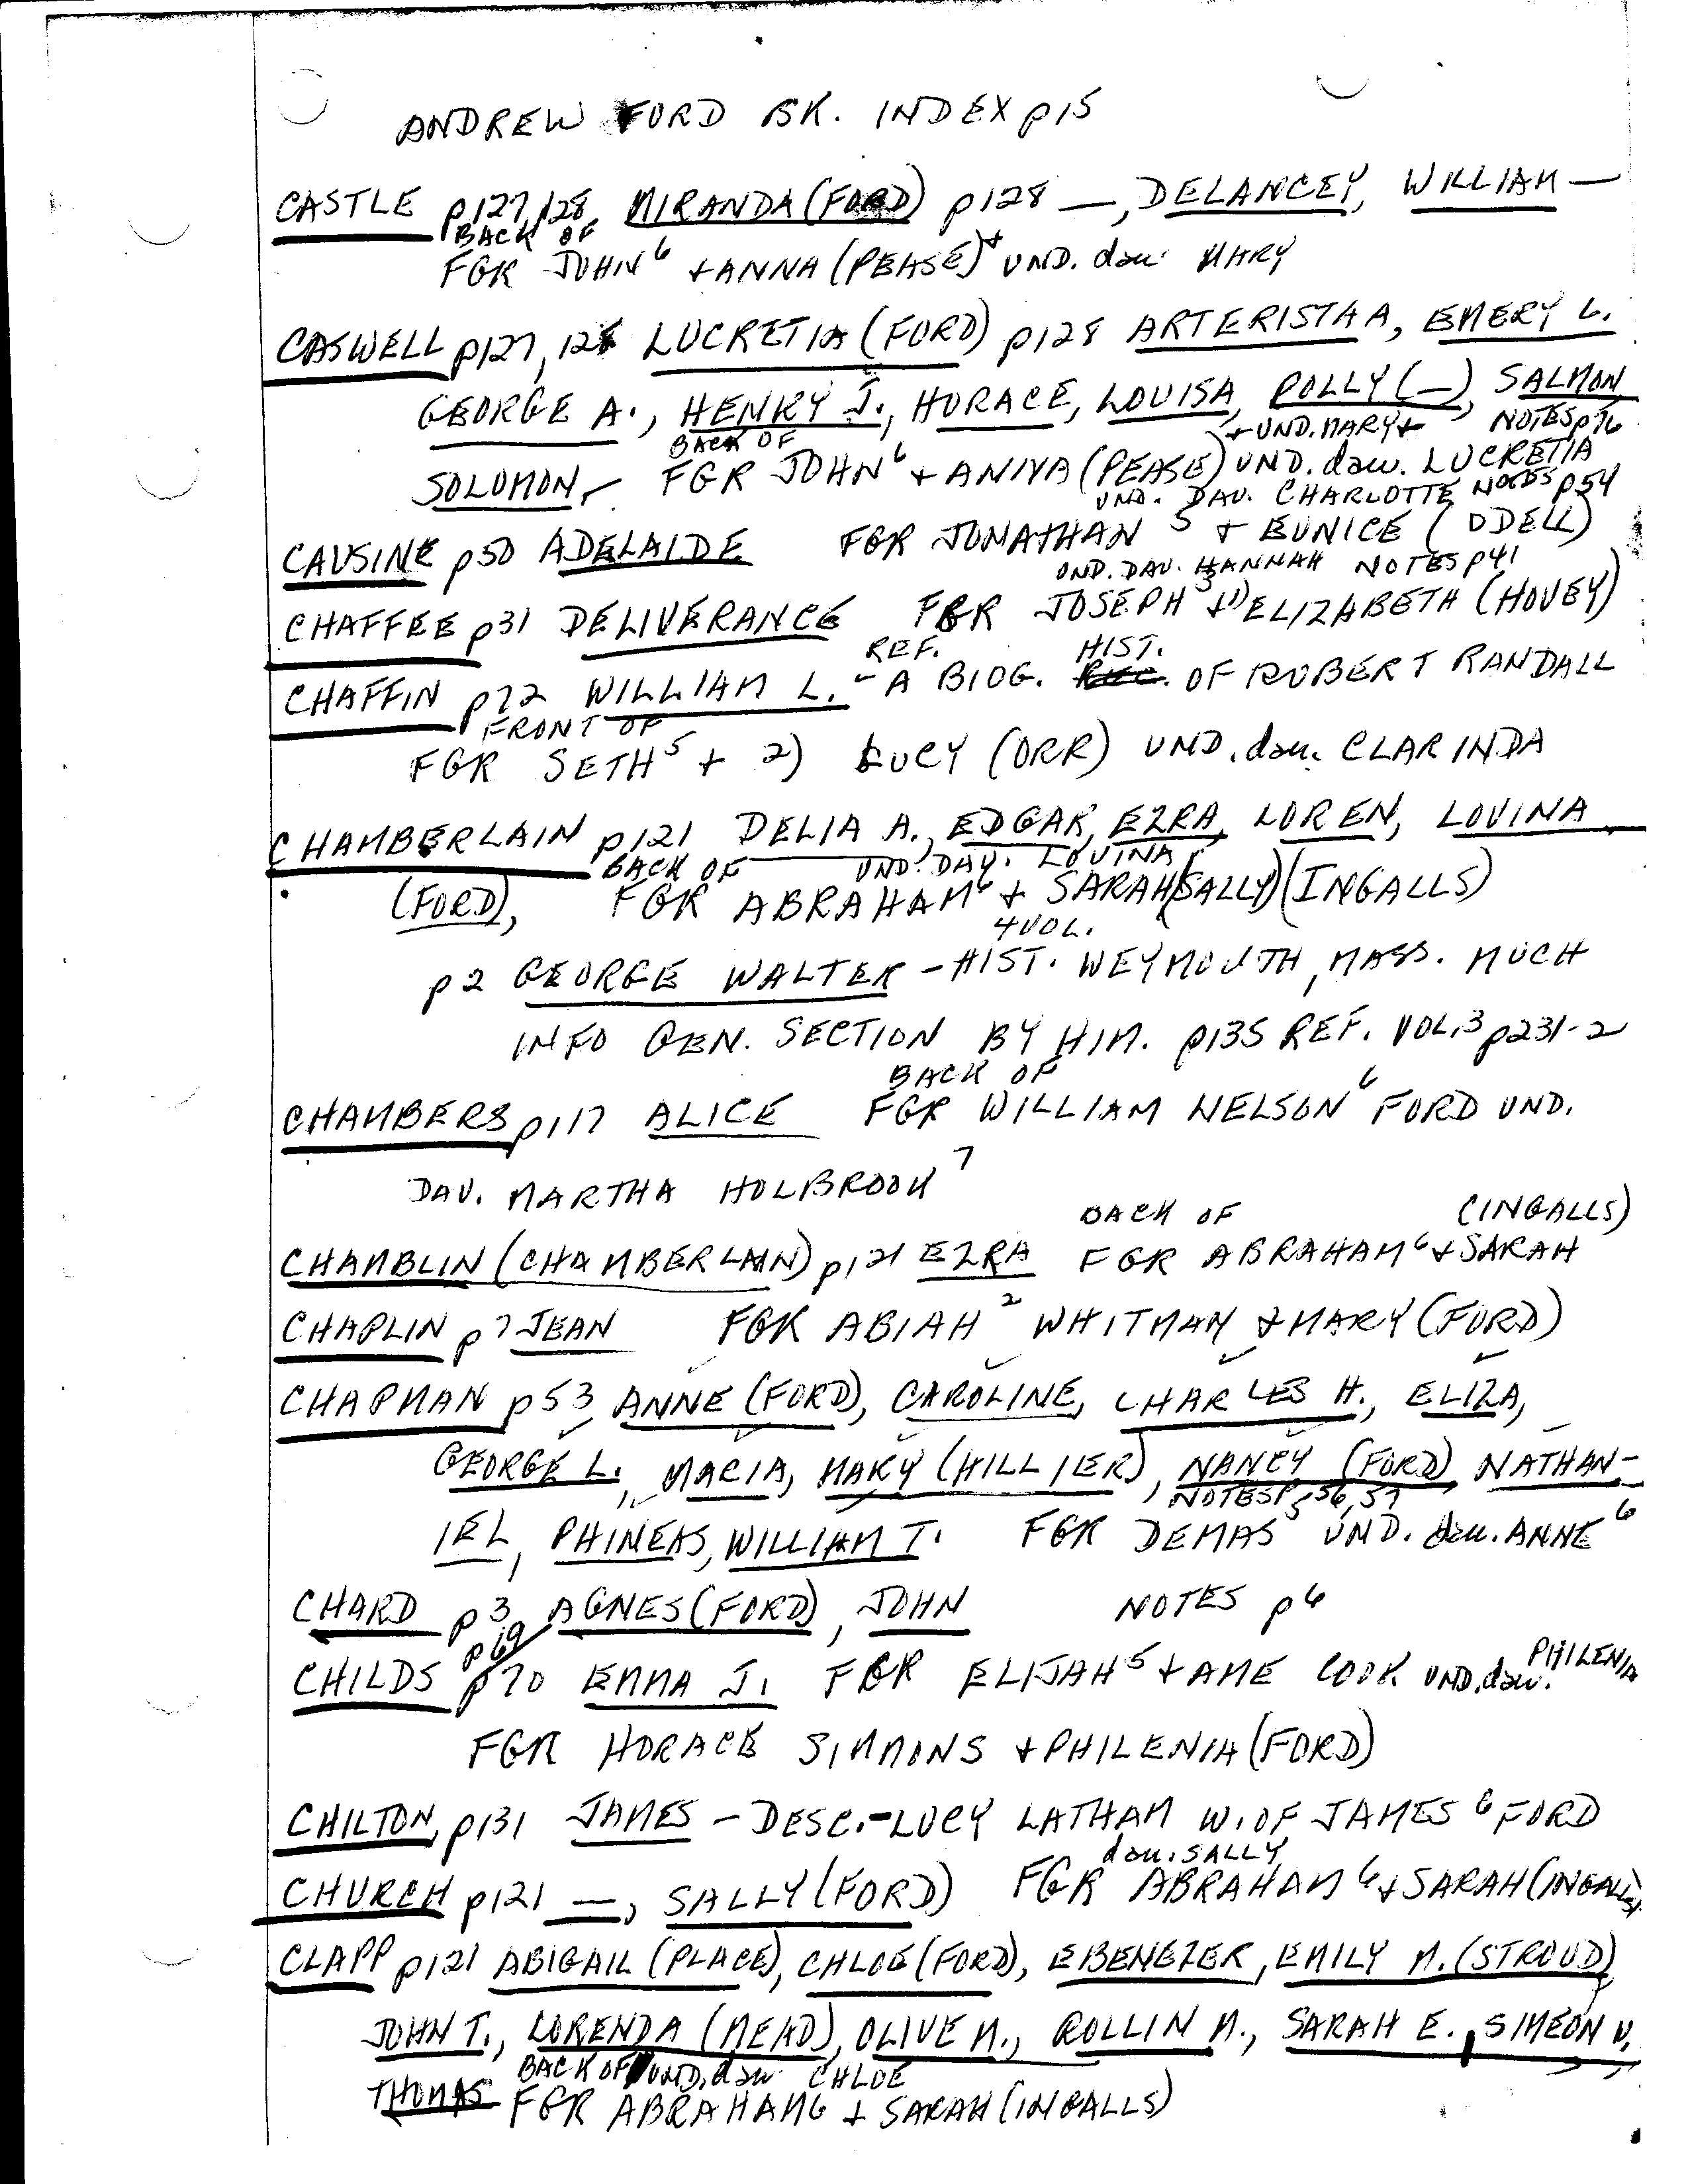 ANDREW FORD BK. INDEX p15
CASTLE p127, 128, MIRANDA (FORD) p128 —, DELANCEY, WILLIAM —
BACK OF
FGR JOHN⁶ + ANNA (PEASE)+ UND. dau. MARY
CASWELL p127, 128 LUCRETIA (FORD) p128 ARTERISTA A, EMERY L.
GEORGE A., HENRY J., HORACE, LOUISA, POLLY (—), SALMON
BACK OF + UND. MARY + NOTES p76
SOLOMON, FGR JOHN⁶ + ANNA (PEASE) UND. dau. LUCRETIA
UND. DAU. CHARLOTTE NOTES p54
CAUSINE p50 ADELAIDE FGR JONATHAN⁵ + EUNICE (ODELL)
UND. DAU. HANNAH NOTES p41
CHAFFEE p31 DELIVERANCE FGR JOSEPH³ + 1) ELIZABETH (HOVEY)
REF. HIST.
CHAFFIN p72 WILLIAM L. - A BIOG. OF ROBERT RANDALL
FRONT OF
FGR SETH⁵ + 2) LUCY (ORR) UND. dau. CLARINDA
CHAMBERLAIN p121 DELIA A., EDGAR, EZRA, LOREN, LOVINA
BACK OF UND. DAU. LOVINA
(FORD), FGR ABRAHAM⁶ + SARAH (SALLY) (INGALLS)
4 VOL.
p2 GEORGE WALTER - HIST. WEYMOUTH, MASS. MUCH
INFO GEN. SECTION BY HIM. p135 REF. VOL. 3 p231-2
BACK OF
CHAMBERS p117 ALICE FGR WILLIAM NELSON⁶ FORD UND.
DAU. MARTHA HOLBROOK⁷
BACK OF (INGALLS)
CHAMBLIN (CHAMBERLAIN) p121 EZRA FGR ABRAHAM⁶ + SARAH
CHAPLIN p7 JEAN FGR ABIAH² WHITMAN + MARY (FORD)
CHAPMAN p53 ANNE (FORD), CAROLINE, CHARLES H., ELIZA,
GEORGE L., MARIA, MARY (HILLIER), NANCY (FORD) NATHAN-
NOTES p 56, 57
IEL, PHINEAS, WILLIAM T. FGR DEMAS⁵ UND. dau. ANNE⁶
CHARD p3 AGNES (FORD), JOHN NOTES p6
p69
CHILDS p70 EMMA J. FGR ELIJAH⁵ + AME COOK UND. dau. PHILENIA
FGR HORACE SIMMONS + PHILENIA (FORD)
CHILTON, p131 JAMES - DESC. - LUCY LATHAM W. OF JAMES⁶ FORD
dau. SALLY
CHURCH p121 —, SALLY (FORD) FGR ABRAHAM⁶ + SARAH (INGALLS)
CLAPP p121 ABIGAIL (PLACE), CHLOE (FORD), EBENEZER, EMILY M. (STROUD)
JOHN T., LORENDA (MEAD), OLIVE M., ROLLIN M., SARAH E., SIMEON V,
BACK OF UND. dau CHLOE
THOMAS FGR ABRAHAM⁶ + SARAH (INGALLS)